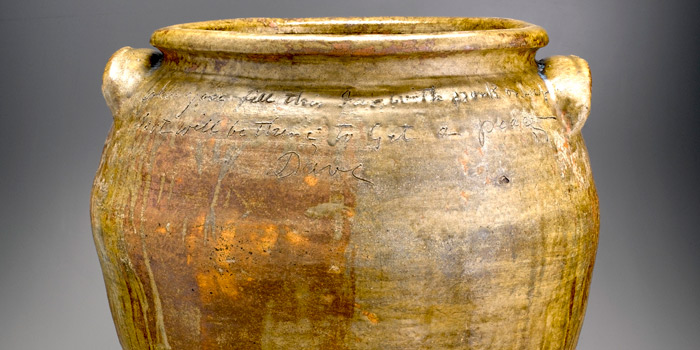 you fill this Jar with pork or
will be there; to get a peace
Dave